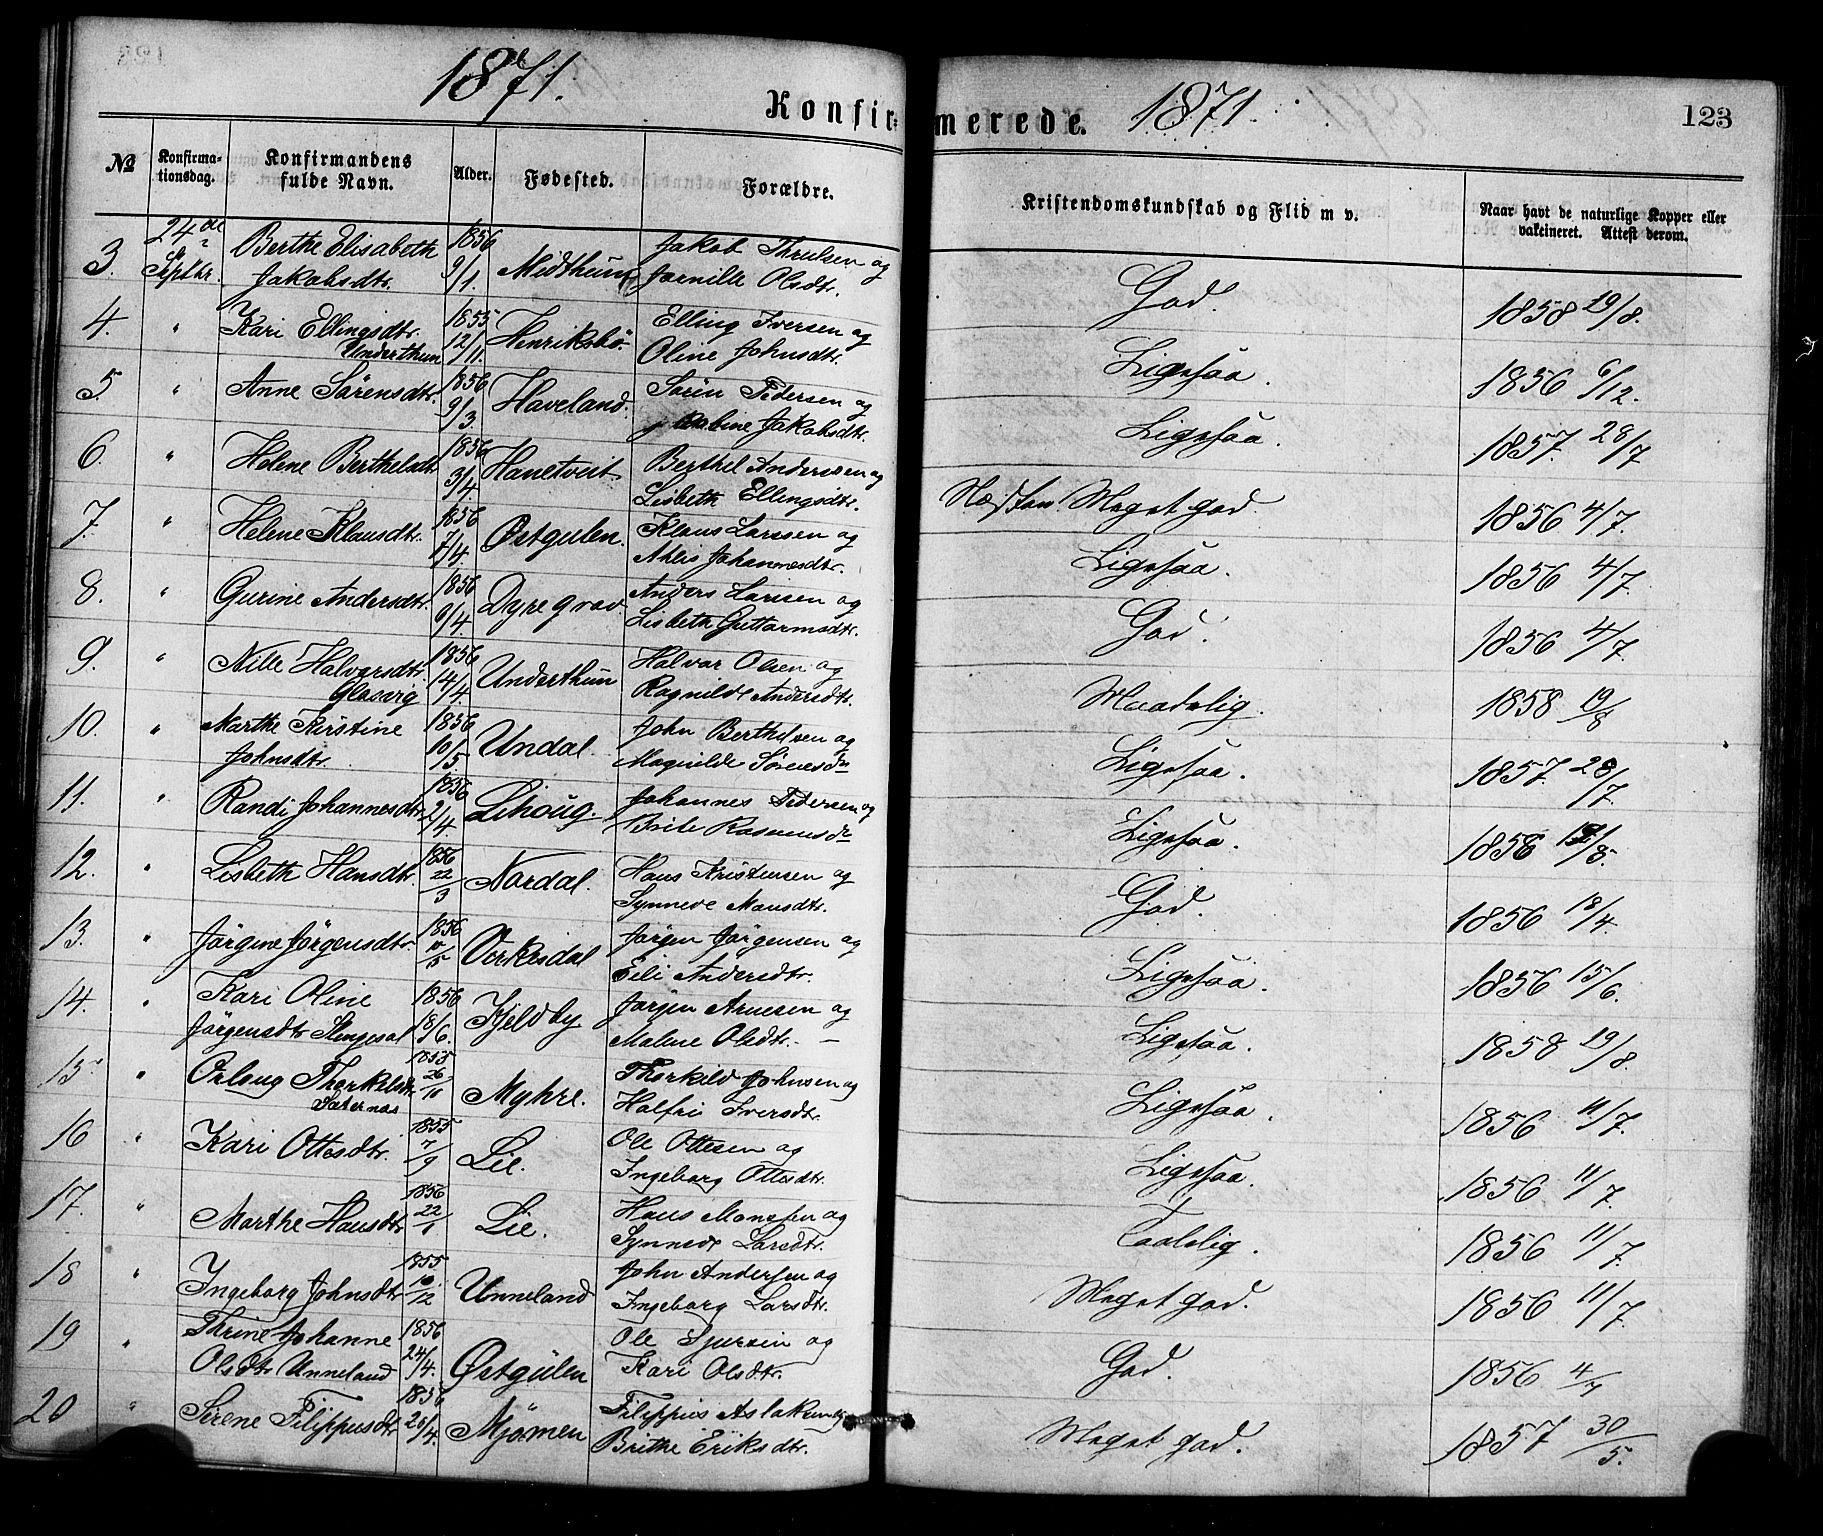 1871.
Konfir=
merede.
1871.
123
№
Konfirma-
tionsdag.
Konfirmandens
fulde Navn.
Alder.
Fødested.
Forældre.
Kristendomskundskab og Flid m v.
Naar havt de naturlige Kopper eller
vakcineret. Attest derom.
3. 24de Septbr. Berthe Elisabeth 1856 Midthun Jakob Thrulsen og God. 1858 19/8.
Jakobsdtr. 9/1. Jornille Olsdtr.
4. " Kari Ellingsdtr. 1855 Henriksbö. Elling Iversen og Ligesaa. 1856 6/12.
Underthun 12/11. Oline Johnsdtr.
5. " Anne Sörensdtr. 1856 Haveland. Sören Pedersen og Ligesaa. 1857 28/7
9/3. Jakobsdtr.
6. " Helene Berthelsdtr 1856 Hanetveit Berthel Andersen og Næsten Meget god. 1856 4/7.
3/4. Lisbeth Ellingsdtr.
7. " Helene Klausdtr. 1856 Østgulen. Klaus Larsen og Ligesaa. 1856 4/7.
7/4. Ahlis Johannesdtr.
8. " Gurine Andersdtr. 1856 Dyregrov Anders Hansen og God. 1856 4/7.
9/4. Lisbeth Guttormsdtr.
9. " Nille Halvorsdtr. 1856 Underthun Halvor Olsen og Maadelig. 1858 19/8
Glosvig 14/4. Ragnilde Andersdtr.
10. " Marthe Kirstine 1856 Undal. John Berthelsen og Ligesaa. 1857. 28/7.
Johnsdtr. 10/5 Magnilde Sörensdtr
11. " Randi Johannesdtr 1856 Lihoug. Johannes Pedersen og Ligesaa. 1858 /8.
2/4 Brite Rasmusdtr
12. " Lisbeth Hansdtr. 1856 Nordal. Hans Kristensen og God. 1856 18/4.
22/3 Synneve Monsdtr.
13. " Jörgine Jörgensdtr. 1856 Virkesdal Jörgen Jörgensen og Ligesaa. 1856 15/6.
10/5 Eili Andersdtr.
14. " Kari Oline 1856 Kjeldby Jörgen Arnesen og Ligesaa. 1858 19/8.
Jörgensdtr Slengesol 18/6. Malene Olsdtr. –
15 " Orloug Thorkilsdtr 1855 Myhre. Thorkild Johnsen og Ligesaa. 1856 11/7.
Sæternæs 26/10 Halfri Iversdtr.
16 " Kari Ottesdtr. 1855 Lie. Ole Ottesen og Ligesaa. 1856 11/7.
7/9 Ingeborg Ottesdtr.
17. " Marthe Hansdtr 1856 Lie. Hans Monssen og Taalelig. 1856 11/7.
22/1 Synneve Larsdtr.
18 " Ingeborg Johnsdtr 1855 Unneland John Andersen og Meget god. 1856 11/7.
10/12 Ingeborg Larsdtr.
19 " Thrine Johanne 1856 Østgulen Ole Sjursen og God. 1856 4/7
Olsdtr Unneland 24/4. Kari Olsdtr.
20 " Sirene Filippusdtr 1856 Mjömen Filippus Aslaksen og Meget god. 1857 30/5.
26/4. Brithe Eriksdtr.